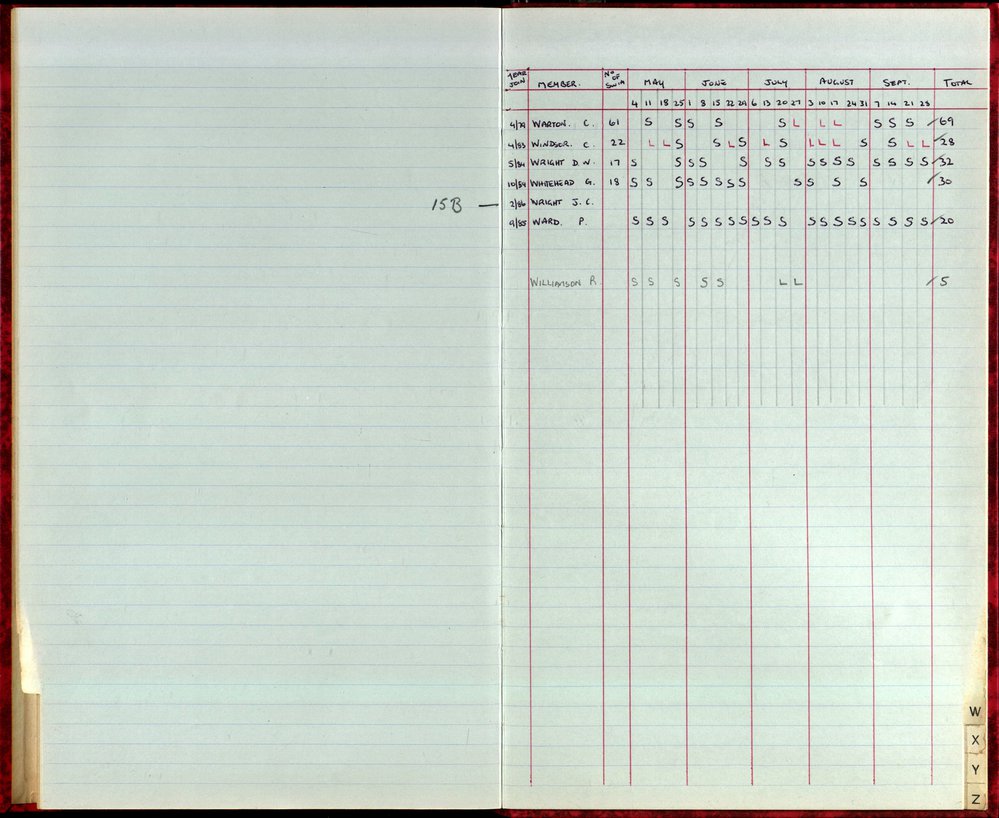 YEAR JOIN MEMBER. No OF SWIM MAY JUNE JULY AUGUST SEPT. TOTAL
4 11 18 25 1 8 15 22 29 6 13 20 27 3 10 17 24 31 7 14 21 28
4/79 WARTON. C. 61 S S S S S L L L S S S / 69
4/83 WINDSOR. C. 22 L L S S L S L S L L L S S L L / 28
5/84 WRIGHT D.W. 17 S S S S S S S S S S S S S S S / 32
10/84 WHITEHEAD G. 18 S S S S S S S S S S S S / 30
15B — 2/86 WRIGHT J.C.
9/85 WARD. P. S S S S S S S S S S S S S S S S S S S S / 20
WILLIAMSON R. S S S S S L L / 5
W
X
Y
Z